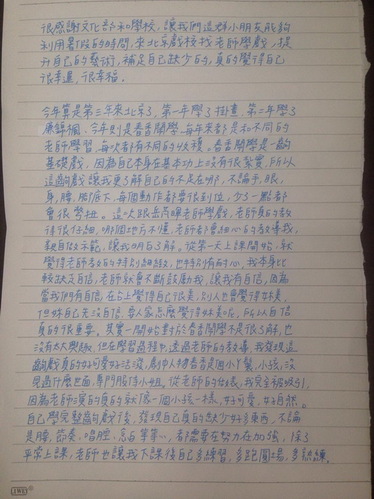 很感謝文化部和學校,讓我們這群小朋友能夠
利用暑假的時間,來北京戲校找老師學戲,提
升自己的藝術,補足自己缺少的,真的覺得自己
很幸運,很幸福。
今年算是第三年來北京了,第一年學了掛畫,第二年學了
今年則是春香鬧學,每年來都是和不同的
老師學習,每次都有不同的收穫。春香鬧學是一齣
基礎戲,因為自己本身在基本功上沒有很紮實,所以
這齣戲讓我更了解自己的不足在哪,不論手、眼、
身、腰、腳底下,每個動作都要很到位,少了一點都
會很彆扭。這次跟岳 老師學戲,老師真的教
得很仔細,哪個地方不懂,老師都會細心的教導我,
親自做示範,讓我明白了解。從第一天上課開始,就
覺得老師教的特別細緻,也特別有耐心,我本身比
較缺乏自信,老師就會不斷鼓勵我,讓我有自信,因為
當我們有自信,在台上覺得自己很美,別人也會覺得好美,
但妳自己先沒自信,要人家怎麼覺得妳美呢,所以自信
真的很重要。其實一開始對於春香鬧學不是很了解,也
沒有太大興趣,但在學習過程中,透過老師的教導,我發現這
齣戲真的好可愛好活潑,劇中人物春香是個小丫鬟,小孩,沒
見過什麼世面,專門服侍小姐,從老師的做表,我完全被吸引,
因為老師演的真的就像一個小孩一樣,好可愛,好自然。
自己學完整齣戲後,發現自己真的缺少好多東西,不論
是腰、節奏、唱腔、念白等等,都需要在努力在加強,除了
平常上課,老師也讓我下課後自己多練習,多跑圓場,多